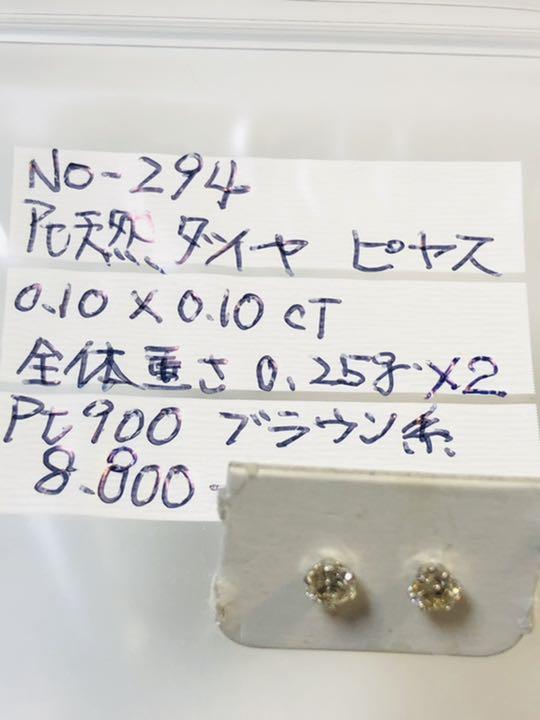 No-294
Pt天然ダイヤ ピヤス
0.10 X 0.10 CT
全体重さ 0.25g X2
Pt900 ブラウン系
8.800-